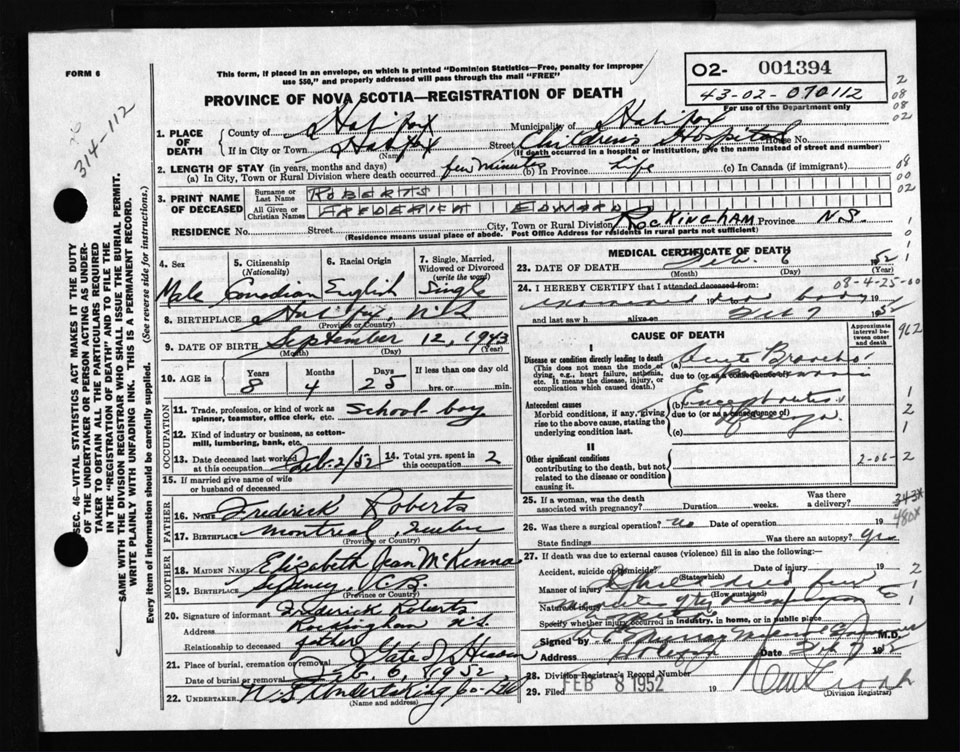 FORM 6
This form, if placed in an envelope, on which is printed "Dominion Statistics—Free, penalty for improper
use $50," and properly addressed will pass through the mail "FREE"
PROVINCE OF NOVA SCOTIA—REGISTRATION OF DEATH
02- 001394
43-02-070112
For use of the Department only
314-112
SEC. 46—VITAL STATISTICS ACT MAKES IT THE DUTY
OF THE UNDERTAKER OR PERSON ACTING AS UNDER-
TAKER TO OBTAIN ALL THE PARTICULARS REQUIRED
IN THE "REGISTRATION OF DEATH" AND TO FILE THE
SAME WITH THE DIVISION REGISTRAR WHO SHALL ISSUE THE BURIAL PERMIT.
WRITE PLAINLY WITH UNFADING INK. THIS IS A PERMANENT RECORD.
Every item of information should be carefully supplied. (See reverse side for instructions.)
1. PLACE OF DEATH
County of Halifax Municipality of Halifax
If in City or Town Halifax Street Children's Hospital House No.
(Name) (If death occurred in a hospital or institution, give the name instead of street and number)
2. LENGTH OF STAY (in years, months and days)
(a) In City, Town or Rural Division where death occurred few minutes (b) In Province Life (c) In Canada (if immigrant)
3. PRINT NAME OF DECEASED
Surname or Last Name ROBERTS
All Given or Christian Names FREDERICK EDWARD
RESIDENCE No. Street City, Town or Rural Division ROCKINGHAM Province N.S
(Residence means usual place of abode. Post Office Address for residents in rural parts not sufficient)
4. Sex Male
5. Citizenship (Nationality) Canadian
6. Racial Origin English
7. Single, Married, Widowed or Divorced (write the word) Single
8. BIRTHPLACE Halifax, N.S.
(Province or Country)
9. DATE OF BIRTH September 12, 1943
(Month) (Day) (Year)
10. AGE in Years 8 Months 4 Days 25 If less than one day old hrs. or min.
OCCUPATION
11. Trade, profession, or kind of work as spinner, teamster, office clerk, etc. School-boy
12. Kind of industry or business, as cotton-mill, lumbering, bank, etc.
13. Date deceased last worked at this occupation Feb. 2/52
14. Total yrs. spent in this occupation 2
15. If married give name of wife or husband of deceased
FATHER
16. NAME Frederick Roberts
17. BIRTHPLACE Montreal, Quebec
(Province or Country)
MOTHER
18. MAIDEN NAME Elizabeth Jean McKenna
19. BIRTHPLACE Sydney, C.B.
(Province or Country)
20. Signature of informant Frederick Roberts
Address Rockingham N.S.
Relationship to deceased father
21. Place of burial, cremation or removal Gate of Heaven
Date of burial or removal Feb. 1952
22. UNDERTAKER N.S Undertaking Co. Ltd
(Name and address)
MEDICAL CERTIFICATE OF DEATH
23. DATE OF DEATH Feb. 6 1952
(Month) (Day) (Year)
08-4-25-00
24. I HEREBY CERTIFY that I attended deceased from:
examined body
and last saw h alive on Feb 7 1952
CAUSE OF DEATH
Approximate interval between onset and death
I
Disease or condition directly leading to death
(This does not mean the mode of dying, e.g., heart failure, asthenia, etc. It means the disease, injury, or complication which caused death.)
(a) Acute Broncho
due to (or as a consequence of)
Antecedent causes
Morbid conditions, if any, giving rise to the above cause, stating the underlying condition last.
(b) Encephalitis
due to (or as a consequence of)
(c)
II
Other significant conditions
contributing to the death, but not related to the disease or condition causing it.
2-06-2
25. If a woman, was the death associated with pregnancy? Duration weeks. Was there a delivery?
343X
480X
26. Was there a surgical operation? No Date of operation 19
State findings Was there an autopsy? yes
27. If death was due to external causes (violence) fill in also the following:
Accident, suicide or homicide? Date of injury 19
(State which)
Manner of injury
(How sustained)
Nature of injury
Specify whether injury occurred in industry, in home, or in public place
Signed by M.D.
Address Halifax Date Feb 7 1952
28. Division Registrar's Record Number
29. Filed FEB 8 1952 19
(Division Registrar)